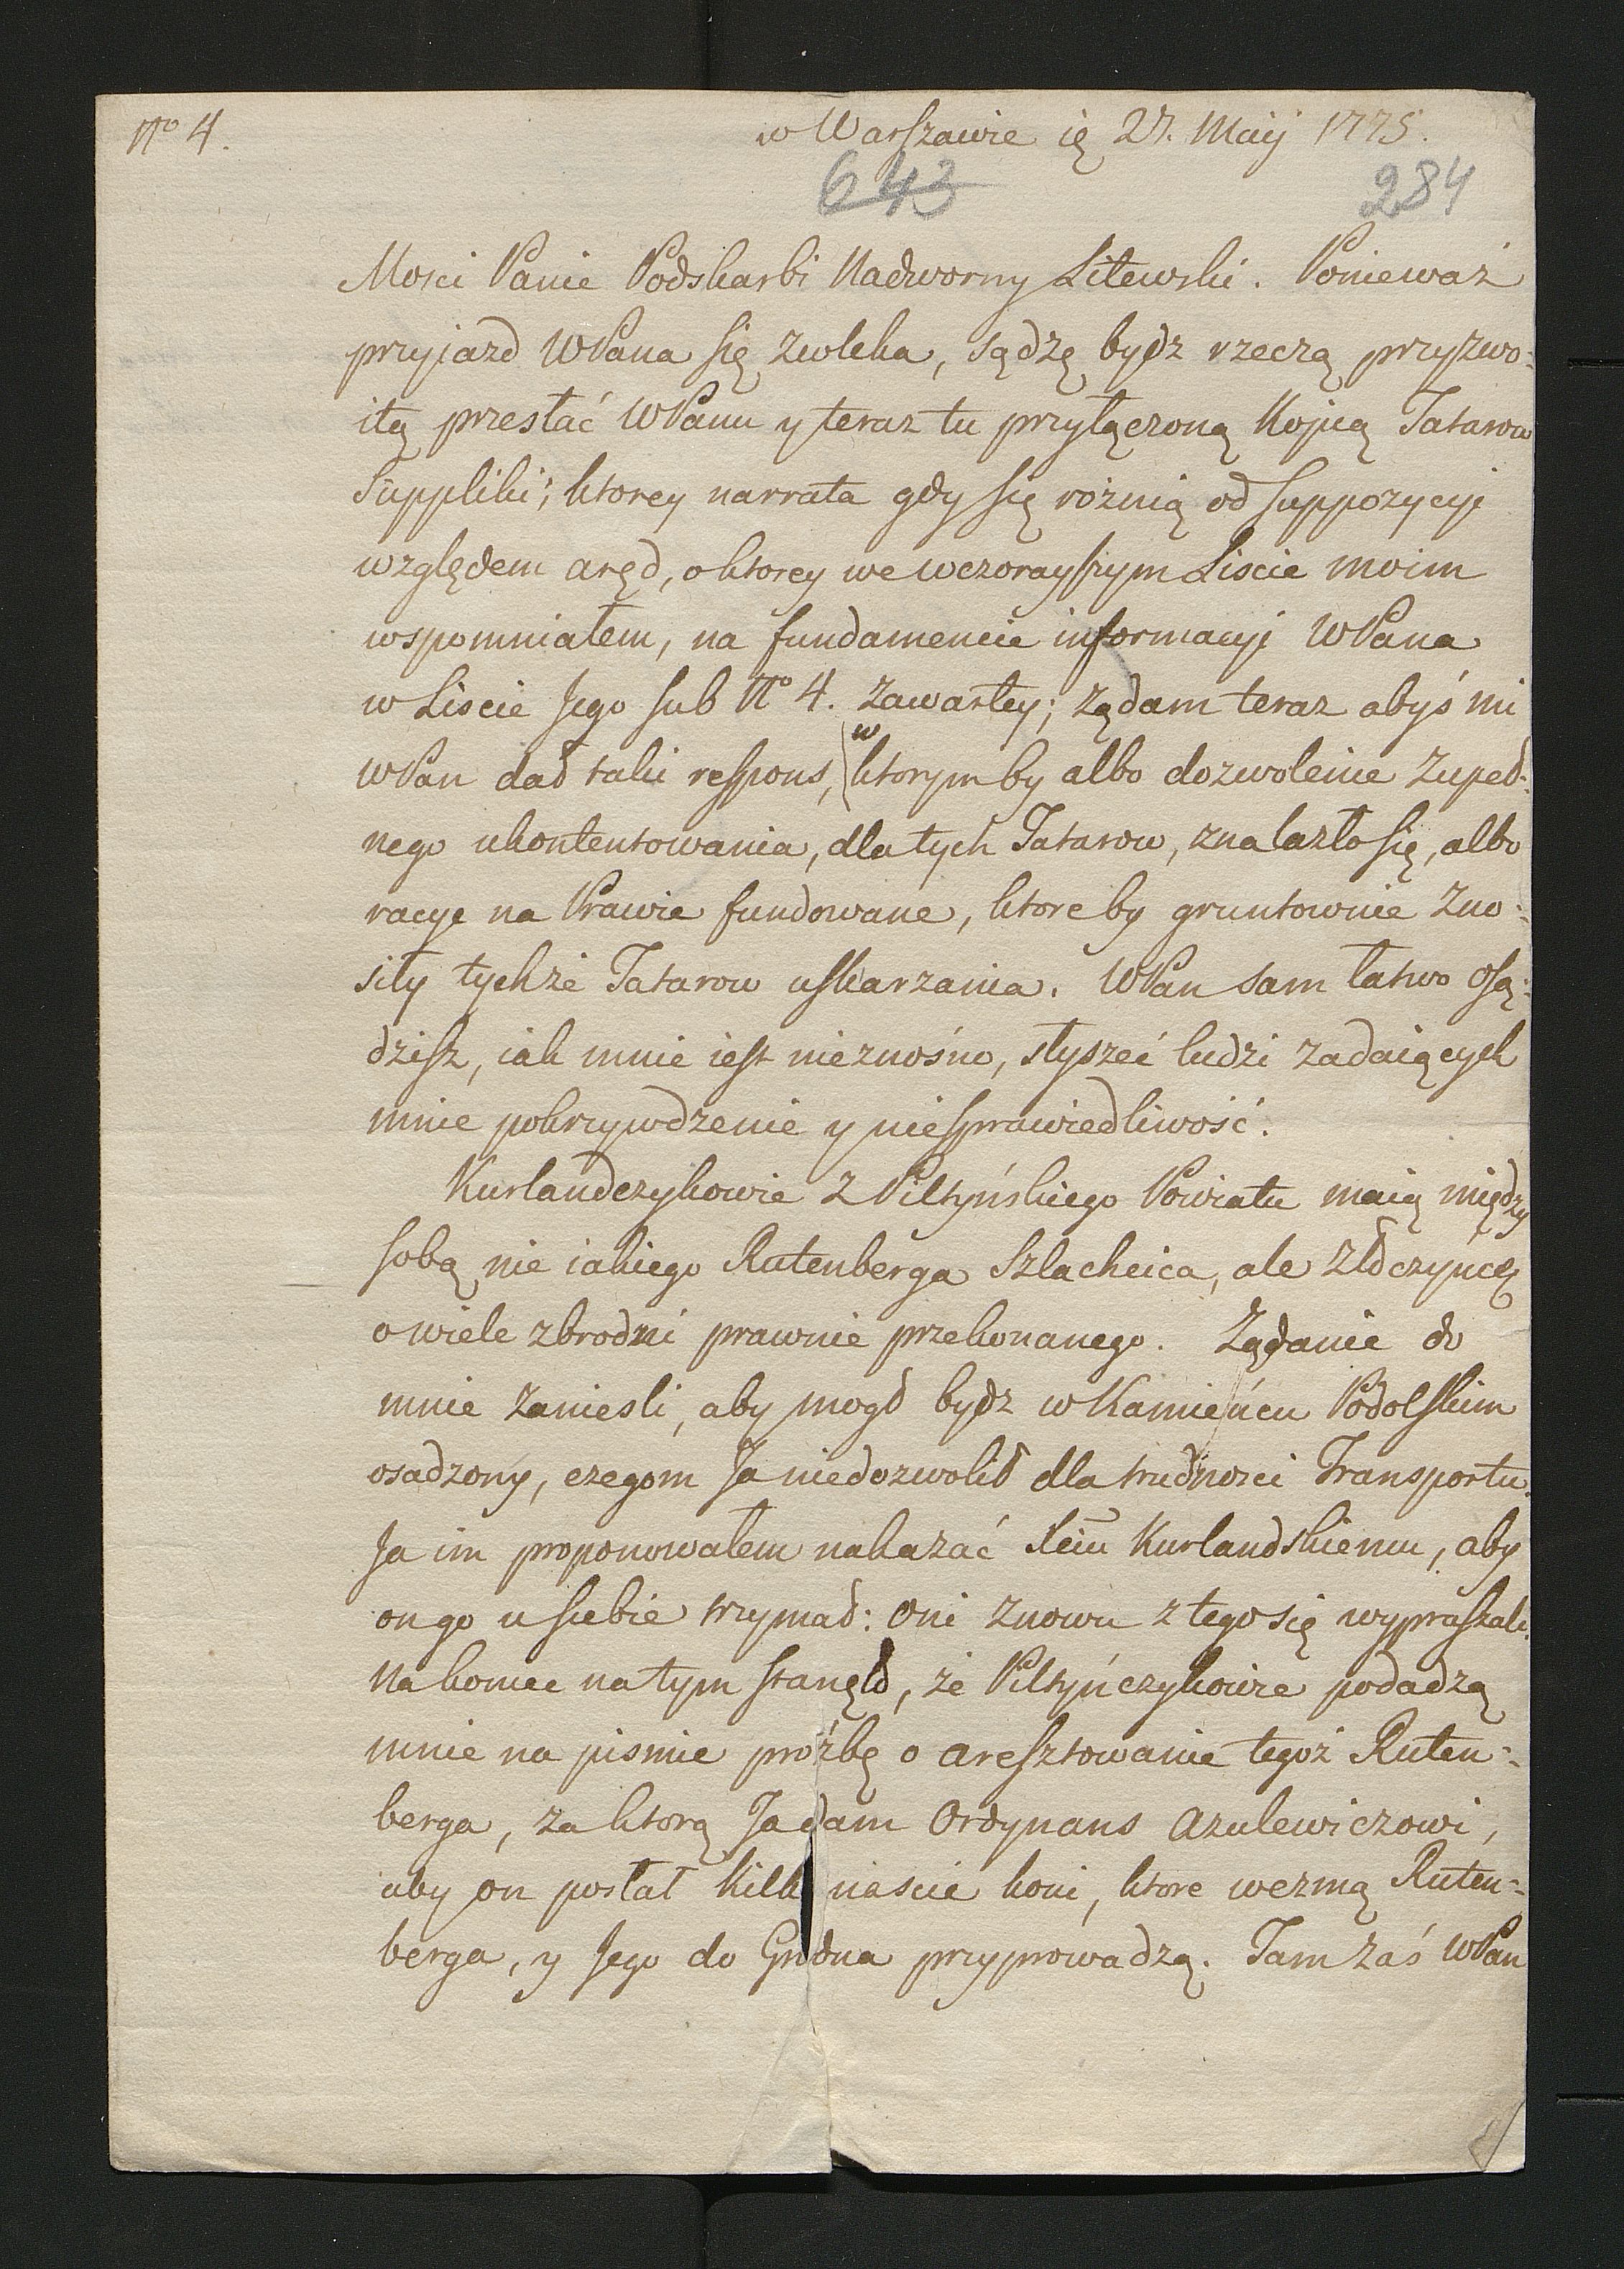 No 4.
w Warszawie ię 27. Maij 1775.
643
284
Mosci Panie Podskarbi Nadworny Litewski. Ponieważ
przyjazd WPana się zwleka, sądzę bydz rzeczą przyzwo:
itą przesłać WPanu y teraz tu przyłączoną Kopią Tatarow
Suppliki; ktorey narrata gdy się rożnią od suppozycyi
względem aręd, o ktorey we wczorayszym Liscie moim
wspomniałem, na fundamencie informacyi WPana
w Liscie Jego sub No 4. zawartey; żądam teraz abyś mi
WPan dał taki respons, w ktorym by albo dozwolenie zupeł:
nego ukontentowania, dla tych Tatarow, znalazło się, albo
racye na Prawie fundowane, ktore by gruntownie zno:
siły tychże Tatarow uskarzania. WPan sam łatwo osą:
dzisz, iak mnie iest nieznośno, słyszeć ludzi zadaiących
mnie pokrzywdzenie y niesprawiedliwość.
Kurlandczykowie z Piltyńskiego Powiatu maią między
sobą nie iakiego Rutenberga Szlachcica, ale złoczyńcę
o wiele zbrodni prawnie przekonanego. Żądanie do
mnie zaniesli, aby mogł bydz w Kamieńcu Podolskim
osadzony, czegom Ja niedozwolił dla trudności Transportu.
Ja im proponowałem nakazać Xciu Kurlandskiemu, aby
on go u siebie trzymał: oni znowu z tego się wypraszali.
Na koniec na tym stanęło, że Piltyńczykowie podadzą
mnie na pismie proźbę o aresztowanie tegoż Ruten:
berga, za ktorą Ja dam Ordynans Azulewiczowi,
aby on posłał kilkanaście koni, ktore wezmą Ruten:
berga, y Jego do Grodna przyprowadzą. Tam zaś WPan